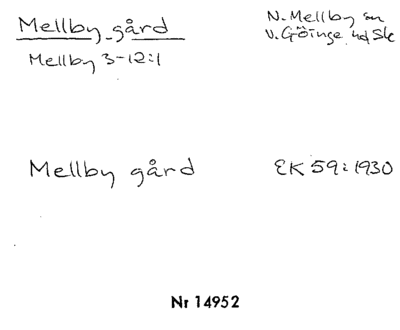 Mellby gård
N. Mellby sn
Mellby 3-12:1
V. Göinge hd Sk
Mellby gård
EK 59:1930
Nr 14952